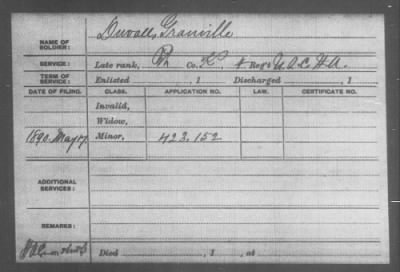 NAME OF SOLDIER: Duvall, Granville
SERVICE: Late rank, Co. K, 4 Reg't U.S.C. H.A.
TERM OF SERVICE: Enlisted , 1 Discharged , 1
DATE OF FILING. CLASS. APPLICATION NO. LAW. CERTIFICATE NO.
Invalid,
Widow,
1890. May Minor, 423.152
ADDITIONAL SERVICES:
REMARKS:
Died , 1 , at